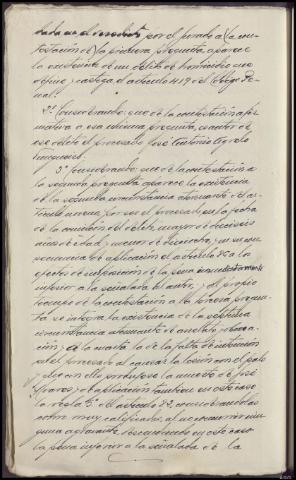 dada en el veredicto por el jurado a (la con-
testación de) la primera pregunta, aparece
la existencia de un delito de homicidio que
define y castiga el artículo 419 del Código Pe-
nal.
2º Considerando: que de la contestación afir-
mativa a esa misma pregunta, es autor de
ese delito el procesado José Antonio
3º Considerando: que de la contestación a
la segunda pregunta aparece la existencia
de la segunda circunstancia atenuante del ar-
tículo nueve por ser el procesado en la fecha
de la comisión del delito mayor de dieciséis
años de edad y menor de dieciocho, y en su con-
secuencia de aplicación el artículo 86 a los
efectos de imposición de la pena inmediatamente
inferior a la señalada al autor; y al propio
tiempo de la contestación a la tercera pregun-
ta se integra la existencia de la séptima
circunstancia atenuante de arrebato y obceca-
ción; y la cuarta de la falta de intención
del procesado al causar la lesión con el palo
y que con ello produjese la muerte de José
y de aplicación también en este caso
la regla 5ª del artículo 82, considerándolas
como muy calificadas, al no concurrir nin-
guna agravante, descontando en este caso
la pena inferior a la señalada de la